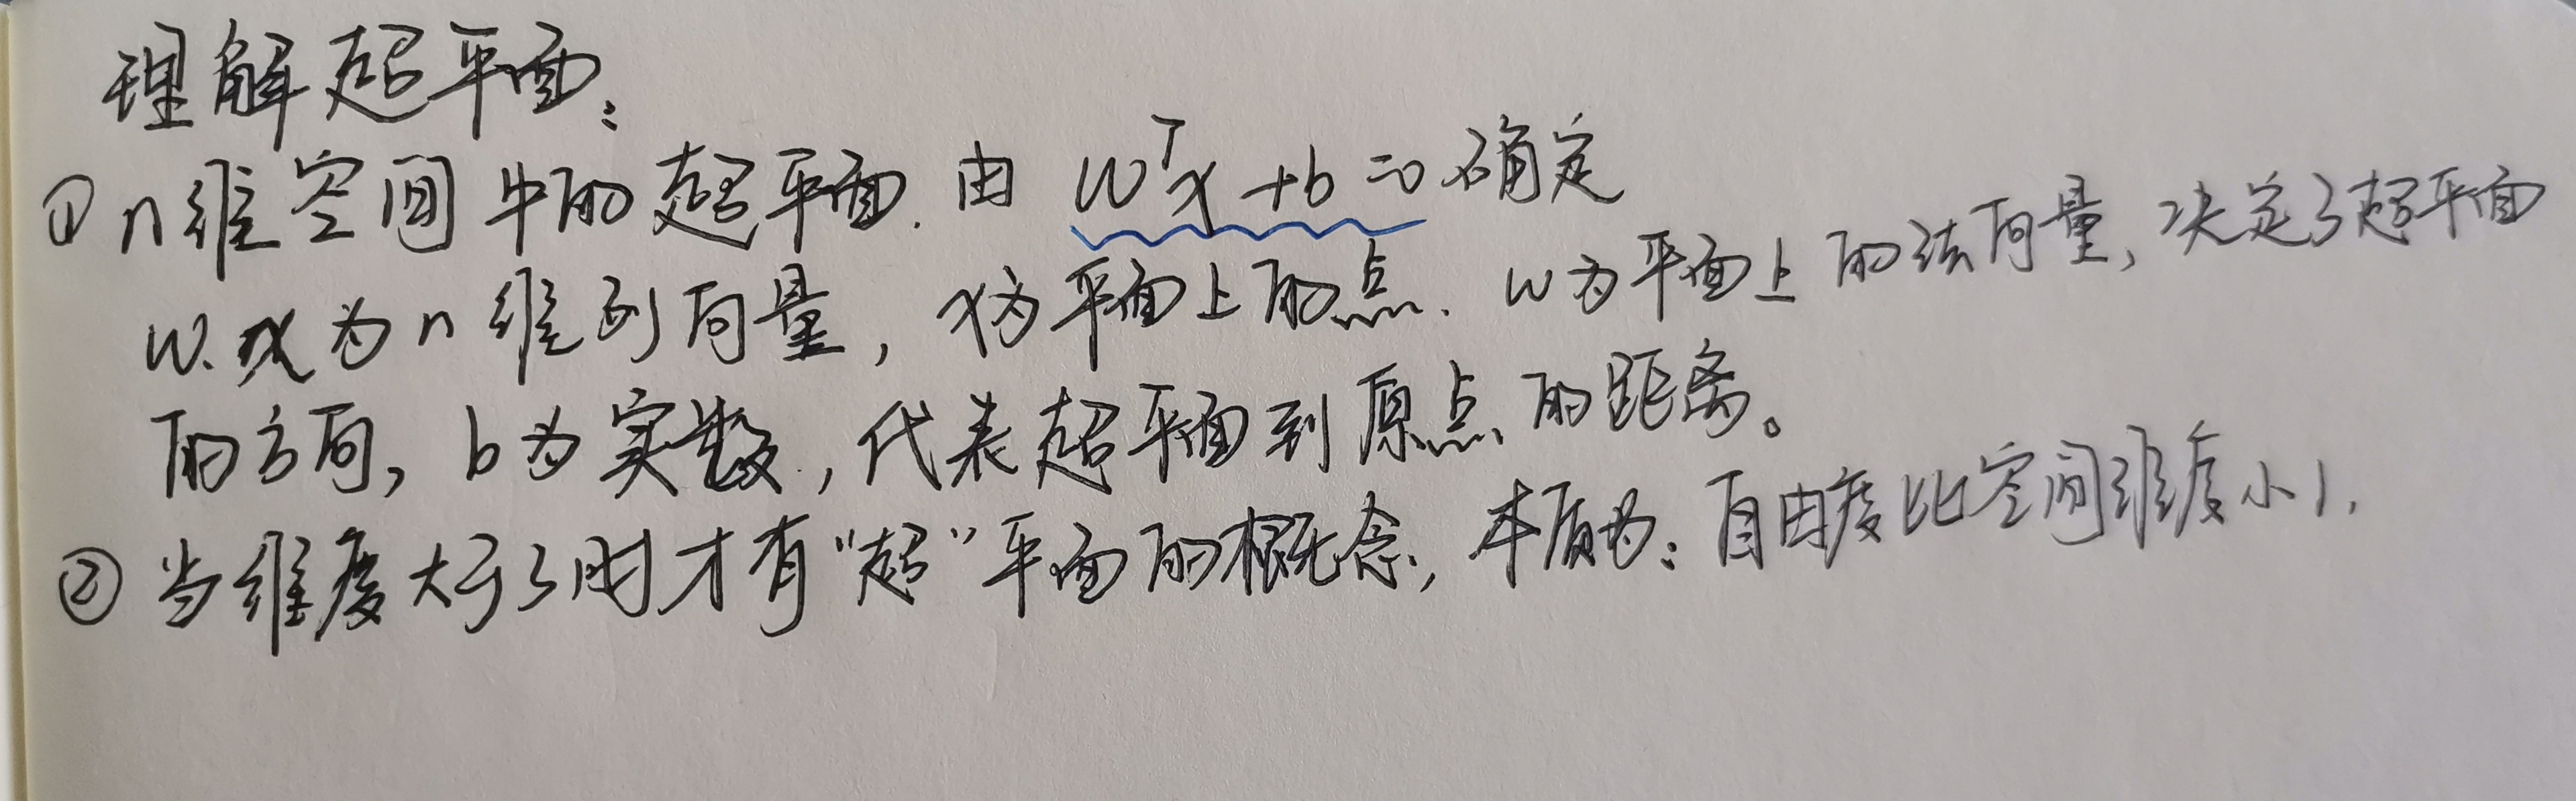 理解超平面:
①n维空间中的超平面.由 wᵀx+b=0确定
w.x为n维列向量,x为平面上的点.w为平面上的法向量,决定了超平面
的方向,b为实数,代表超平面到原点的距离。
②当维度大于3时才有"超"平面的概念,本质为:自由度比空间维度小1.